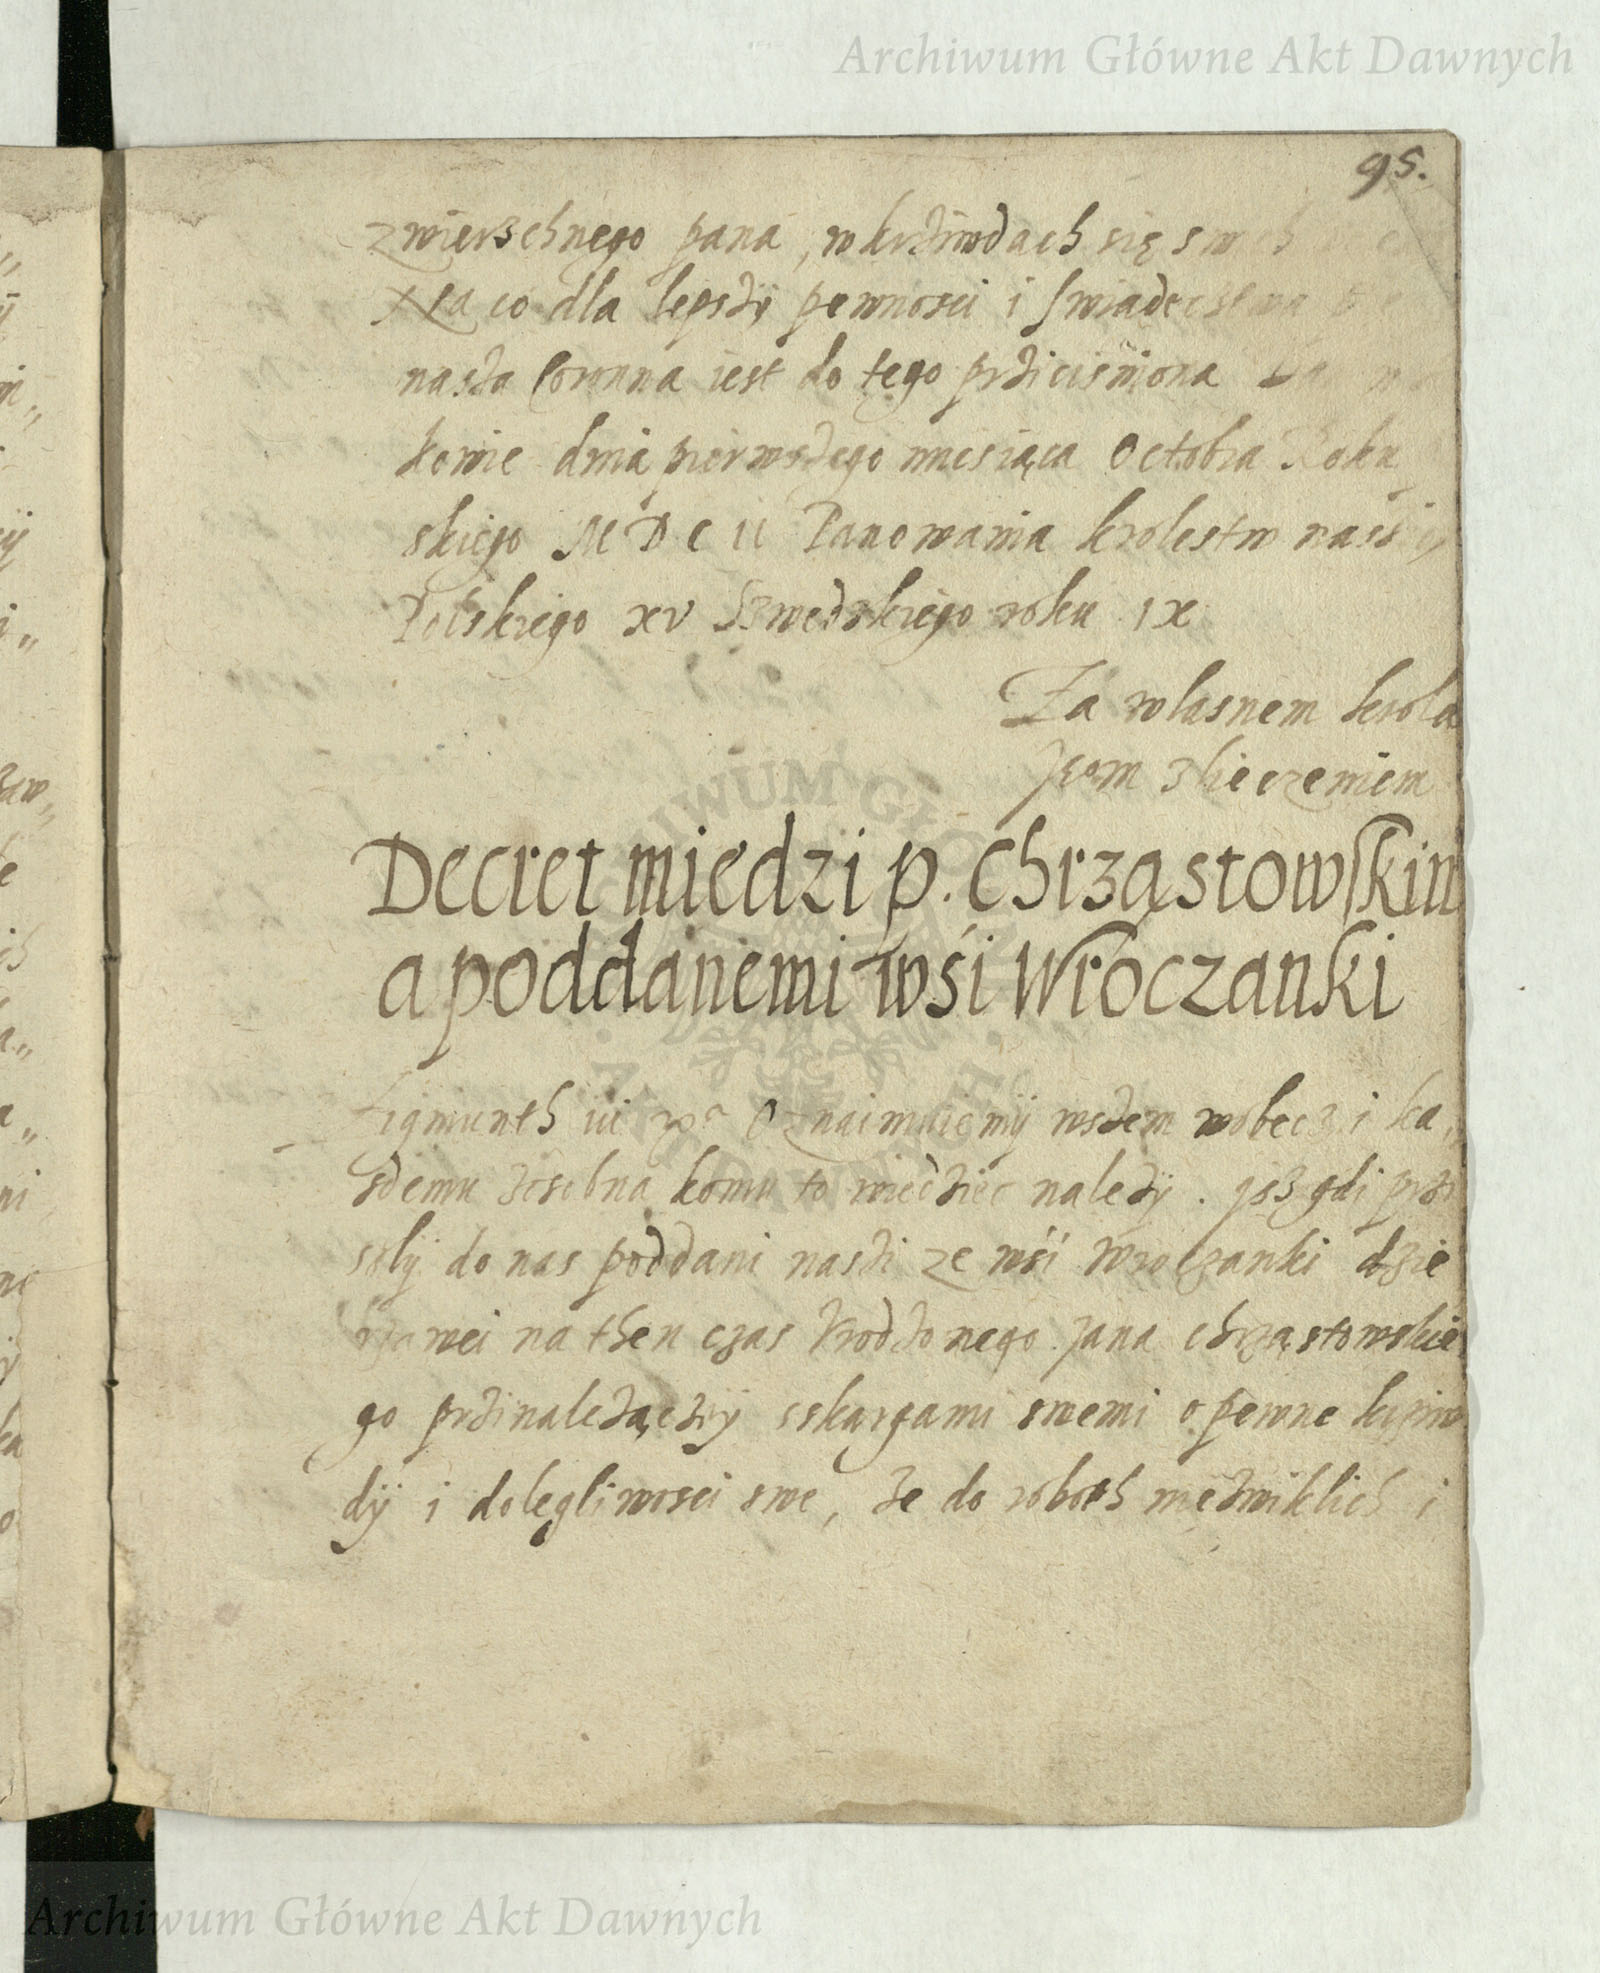 Archiwum Główne Akt Dawnych
95.
zwierzchnego pana, w krziwdach się
co dla lepszÿ pewnosci i swiadecstwa
nasza Coronna iest do tego prziciśniona
kowie dnia pierwszego miesiąca Octobra Roku
skiego MDCII Panowania krolestw naszich
Polskiego XV Szwedzkiego roku IX
Za wlasnem krola
Jego M zlieczeniem
Decret miedzi p. Chrząstowskim
a poddanemi wśi Wroczanki
Zigmunth iii Oznaimuiemÿ wszem wobecz i ka„
zdemu zosobna komu to wiedziec nalezÿ. Jsz gdi przi
szlÿ do nas poddani naszi ze wśi Wroczanki dzie
rzawei na then czas Vrodzonego Jana Chrząstowskie
go przinalezączÿ sskargami swemi o pewne krziw
dÿ i dolegliwosci swe, ze do roboth niezwiklich i
ARCHIWUM GŁÓWNE AKT DAWNYCH
Archiwum Główne Akt Dawnych